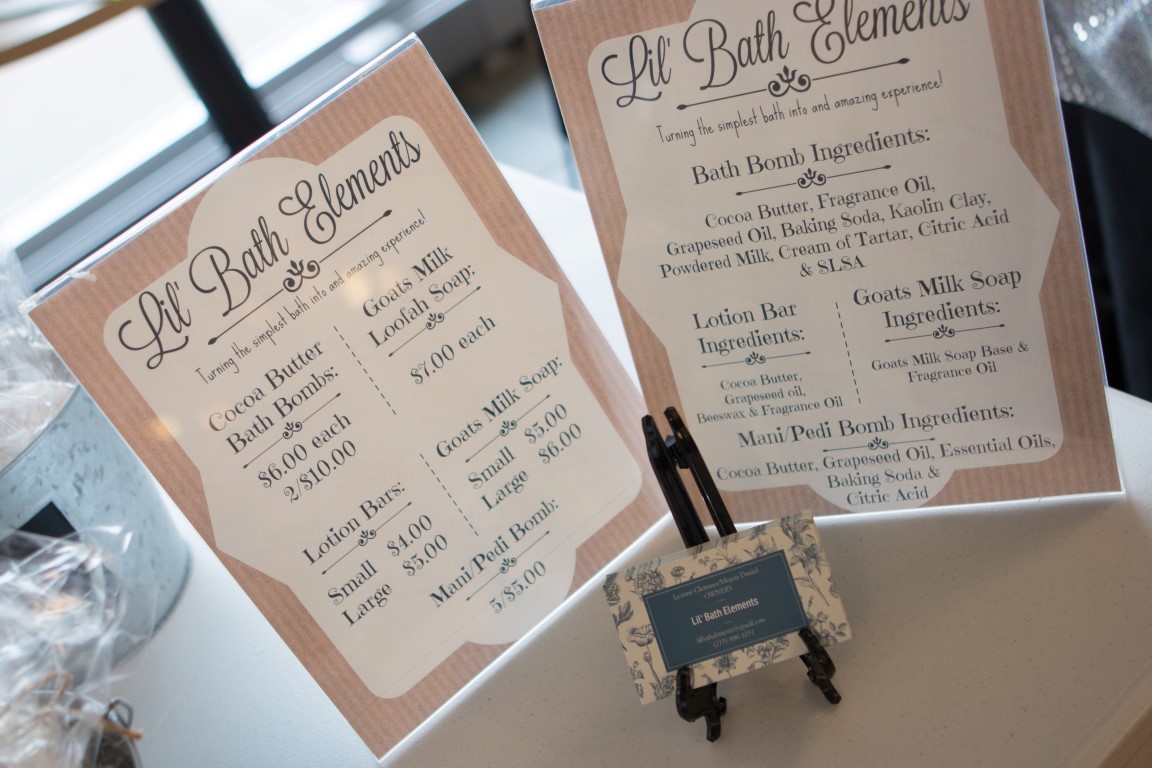 Lil' Bath Elements
Turning the simplest bath into and amazing experience!
Cocoa Butter
Bath Bombs:
$6.00 each
2/$10.00
Lotion Bars:
Small $4.00
Large $5.00
Goats Milk
Loofah Soap:
$7.00 each
Goats Milk Soap:
Small $5.00
Large $6.00
Mani/Pedi Bomb:
5/$5.00
Lil' Bath Elements
Turning the simplest bath into and amazing experience!
Bath Bomb Ingredients:
Cocoa Butter, Fragrance Oil,
Grapeseed Oil, Baking Soda, Kaolin Clay,
Powdered Milk, Cream of Tartar, Citric Acid
& SLSA
Lotion Bar
Ingredients:
Cocoa Butter,
Grapeseed oil,
Beeswax & Fragrance Oil
Goats Milk Soap
Ingredients:
Goats Milk Soap Base &
Fragrance Oil
Mani/Pedi Bomb Ingredients:
Cocoa Butter, Grapeseed Oil, Essential Oils,
Baking Soda &
Citric Acid
OWNERS
Lil' Bath Elements